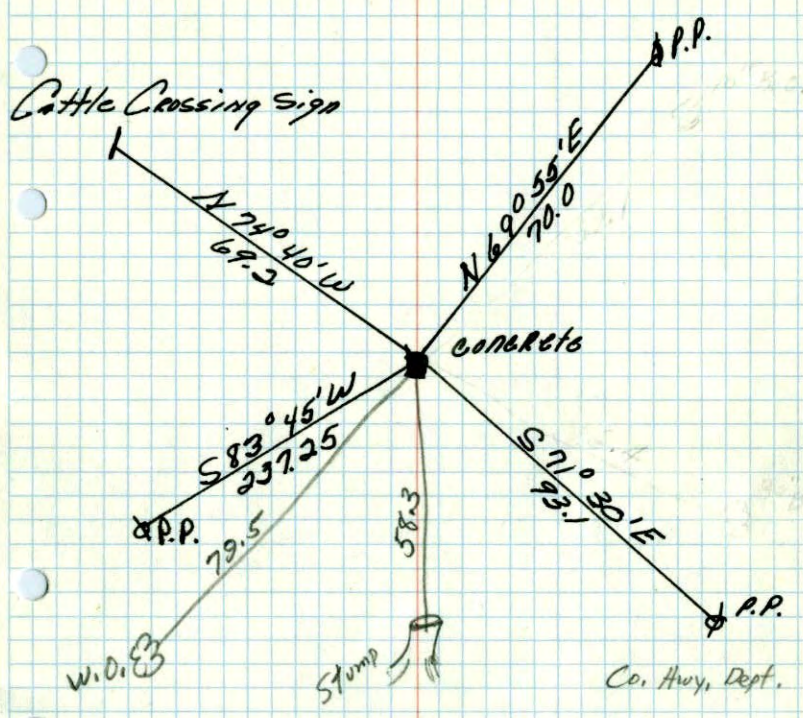 P.P.
Cattle Crossing Sign
N 74° 40' W
69.2
N 69° 55' E
70.0
CONCRETE
S 83° 45' W
237.25
S 71° 30' E
93.1
P.P.
79.5
58.3
P.P.
W.O.
Stump
Co. Hwy. Dept.